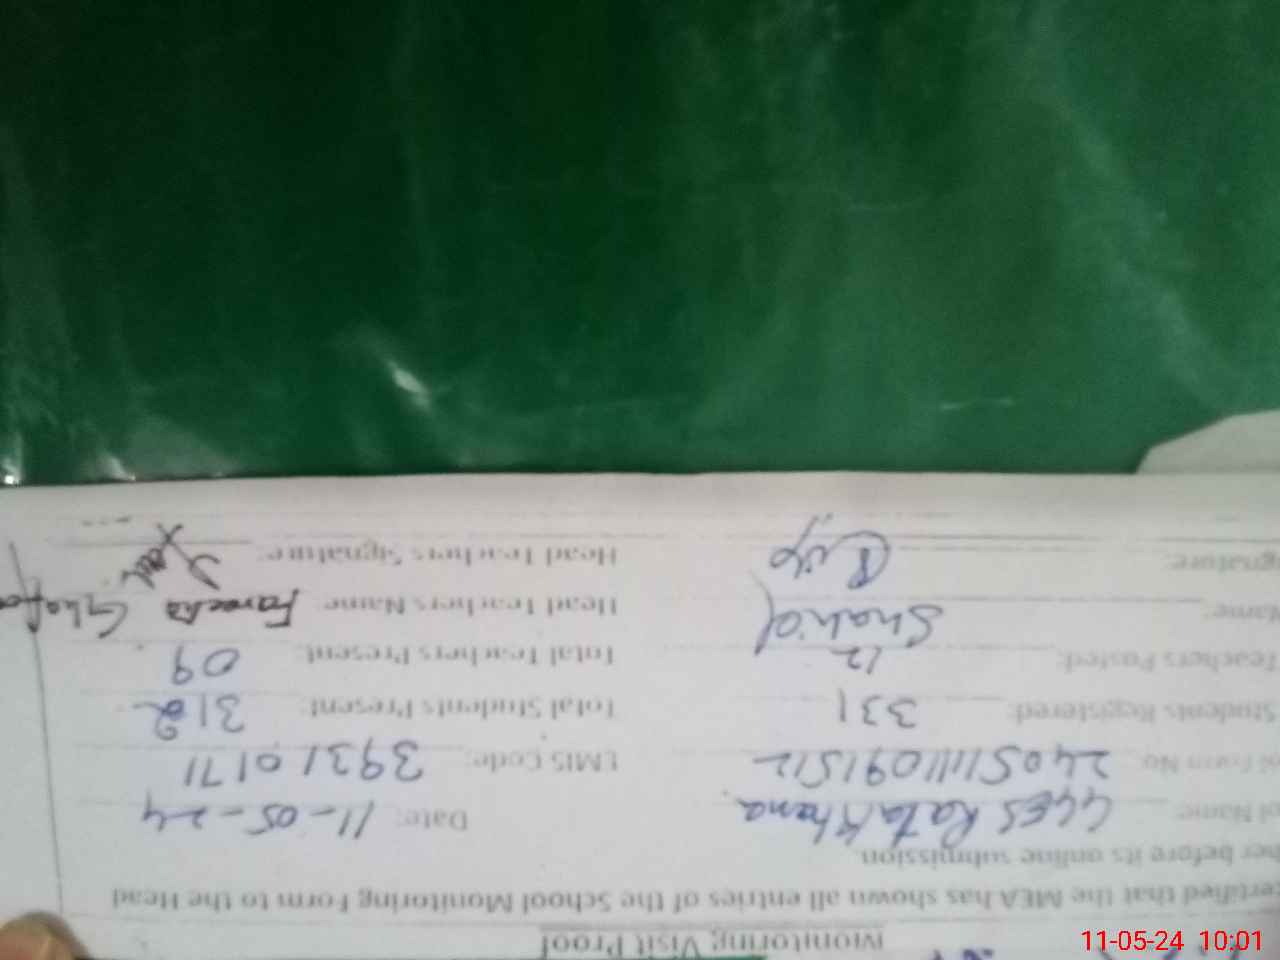 Monitoring Visit Proof
ertified that the MEA has shown all entries of the School Monitoring Form to the Head
her before its online submission.
ol Name: GGES Rata Khana Date: 11-05-24
of Form No: 2405111091512 EMIS Code: 39310171
Students Registered: 331 Total Students Present: 312
Teachers Posted: 12 Total Teachers Present: 09
Name: Shahid Head Teachers Name: Ghafo
gnature: Head Teachers Signature:
11-05-24 10:01